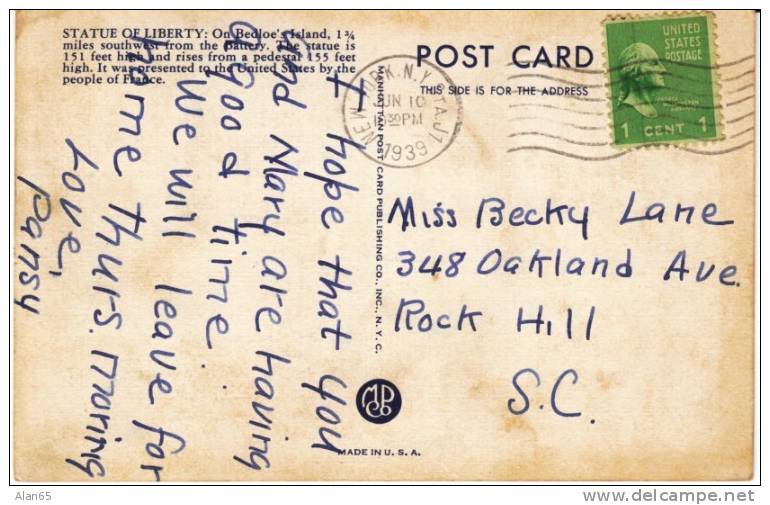 STATUE OF LIBERTY: On Bedloe's Island, 1¾
miles southwest from the Battery. The statue is
151 feet high and rises from a pedestal 155 feet
high. It was presented to the United States by the
people of France.
I hope that you
and Mary are having
a good time.
We will leave for
home thurs. moring
Love,
Pansy
MANHATTAN POST CARD PUBLISHING CO., INC., N. Y. C.
POST CARD
THIS SIDE IS FOR THE ADDRESS
NEW YORK, N.Y. STA. J1
JUN 10
PM
1939
UNITED
STATES
POSTAGE
1 CENT 1
Miss Becky Lane
348 Oakland Ave.
Rock Hill
S.C.
MPCo
MADE IN U. S. A.
Alan65
http://www.delcampe.net